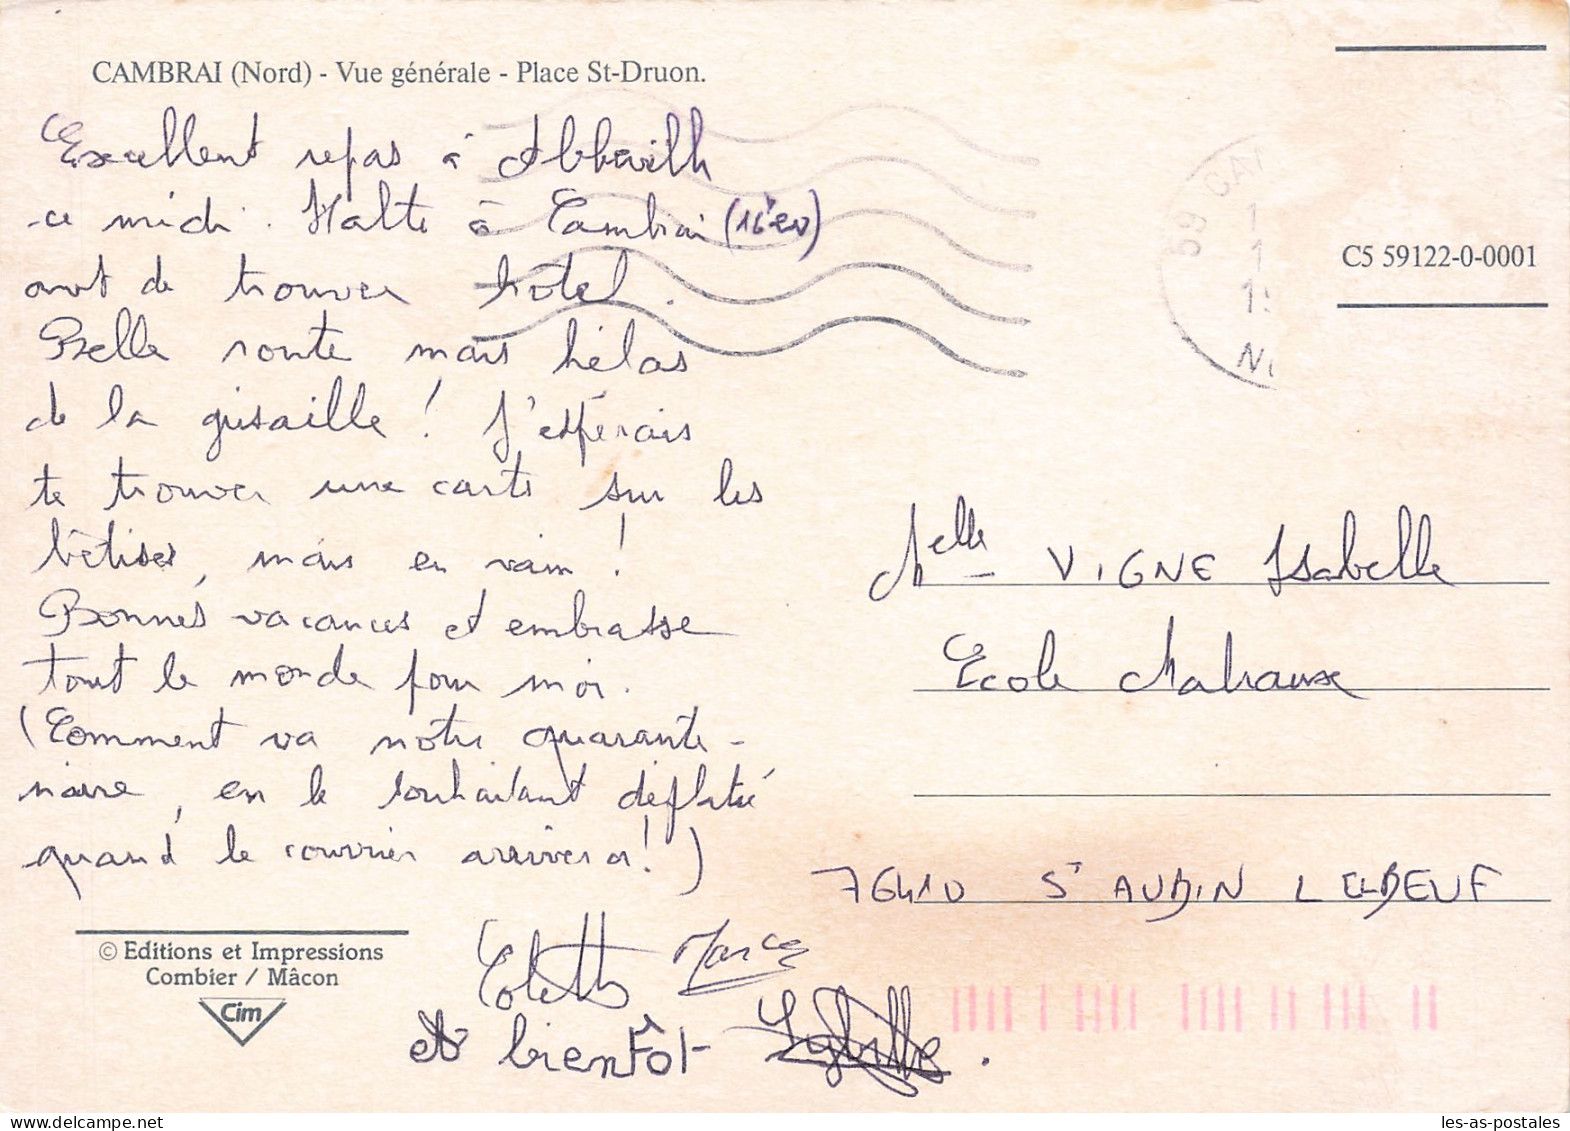 CAMBRAI (Nord) - Vue générale - Place St-Druon.
Excellent repas à Abbeville
ce midi. Halte à Cambrai
avt de trouver hôtel.
Belle route mais hélas
de la grisaille ! J'espérais
te trouver une carte sur les
bêtises, mais en vain !
Bonnes vacances et embrasse
tout le monde pour moi.
(Comment va notre quarante-
naire, en le souhaitant déplâtré
quand le courrier arrivera !)
Colette
A bientôt
C5 59122-0-0001
Melle VIGNE Isabelle
Ecole Malraux
76410 St AUBIN L ELBEUF
© Editions et Impressions
Combier / Mâcon
Cim
59 CAI
les-as-postales